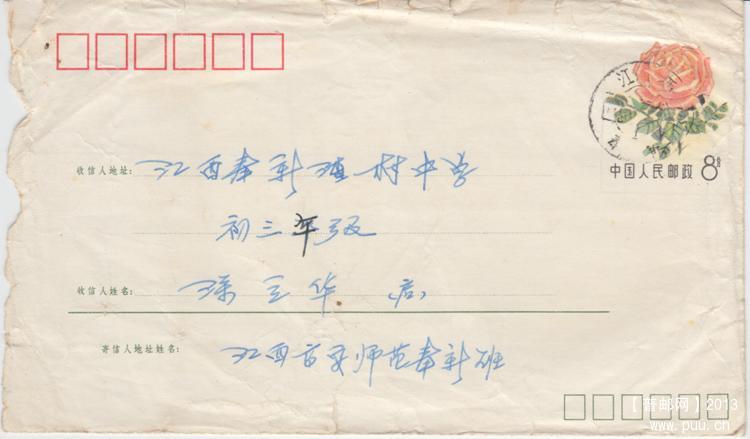 江
中国人民邮政 8分
收信人地址: 江西奉新 村中学
初三年级
收信人姓名: 三华 启
寄信人地址姓名: 江西 师范奉新班
【普邮网】2013
www.puu.cn